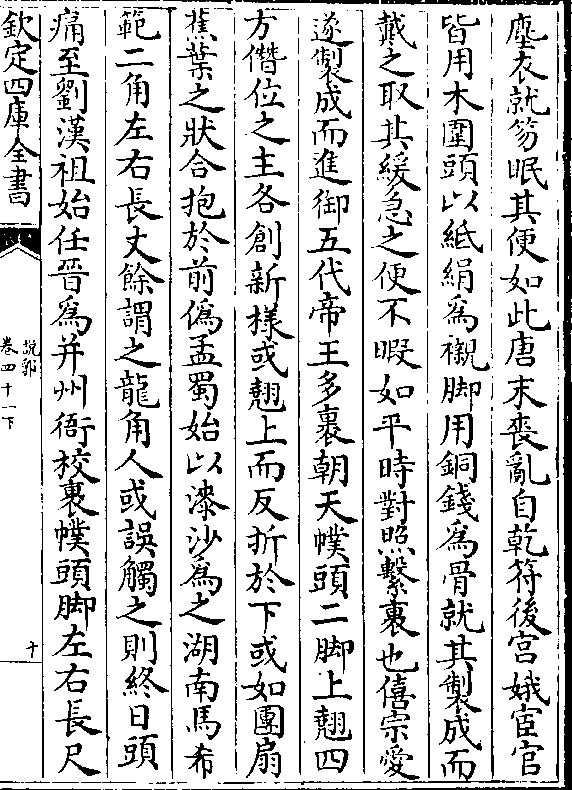 塵衣就笏眠其便如此唐末喪亂自乾符後宫娥宦官
皆用木圍頭以紙絹為襯脚用銅錢為骨就其製成而
戴之取其緩急之便不暇如平時對照繫裹也僖宗愛
遂製成而進御五代帝王多裹朝天幞頭二脚上翹四
方僭位之主各創新様或翹上而反折於下或如團扇
蕉葉之狀合抱於前偽孟蜀始以漆沙為之湖南馬希
範二角左右長丈餘謂之龍角人或誤觸之則終日頭
痛至劉漢祖始任晉為并州衙校裹幞頭脚左右長尺
欽定四庫全書
說郛
卷四十一下
十